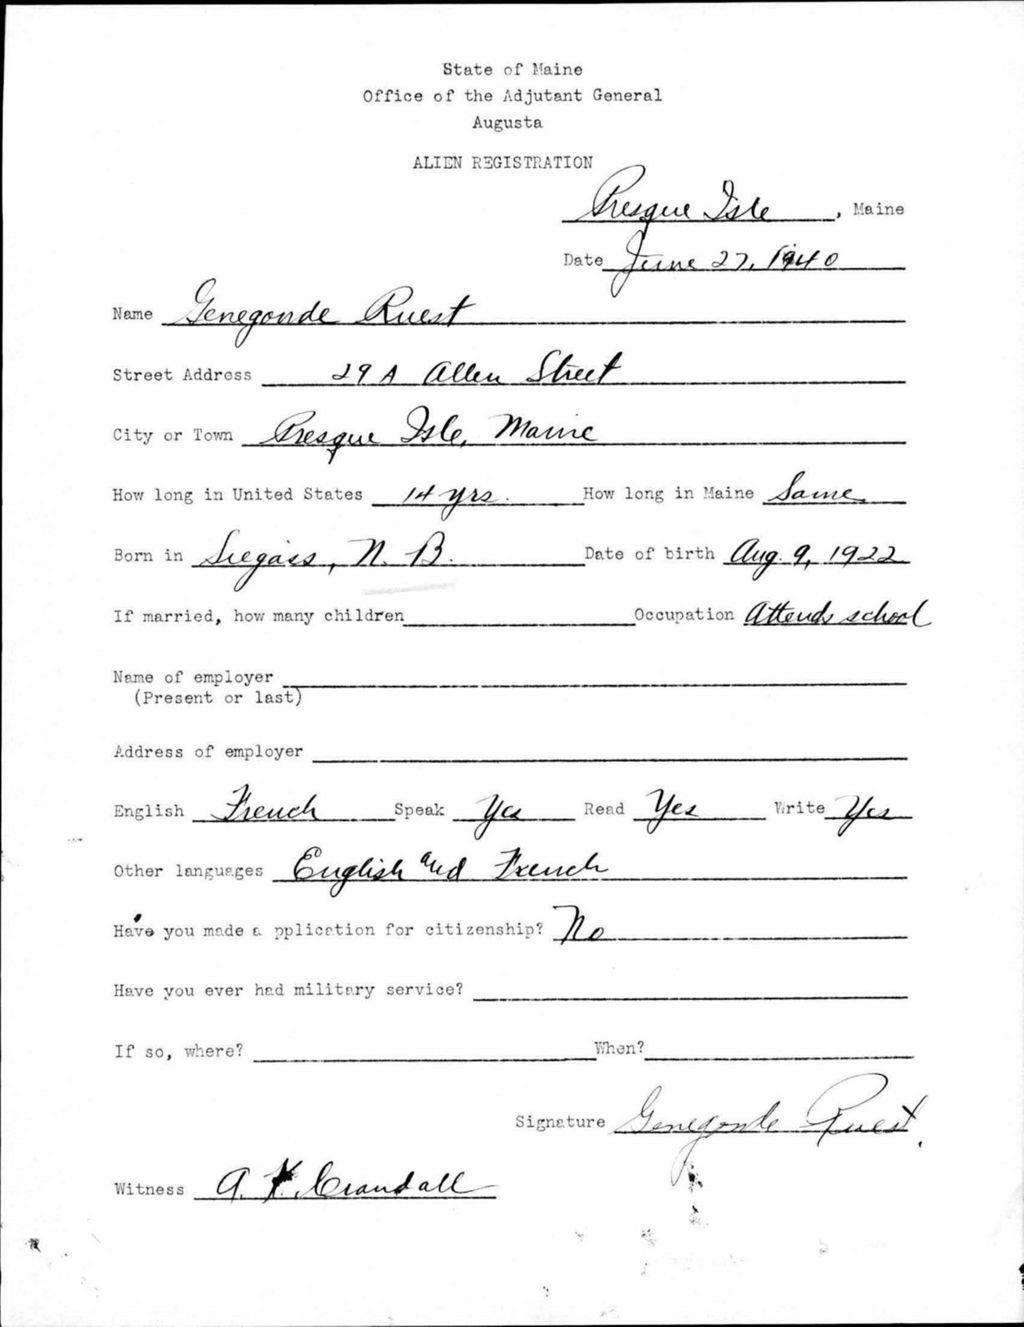 State of Maine
Office of the Adjutant General
Augusta
ALIEN REGISTRATION
Presque Isle, Maine
Date June 27, 1940
Name Genegonde Ruest
Street Address 29 A Allen Street
City or Town Presque Isle, Maine
How long in United States 14 yrs. How long in Maine Same
Born in Siegass, N. B. Date of birth Aug. 9, 1922
If married, how many children Occupation Attends school
Name of employer
(Present or last)
Address of employer
English French Speak Yes Read Yes Write Yes
Other languages English and French
Have you made a pplication for citizenship? No
Have you ever had military service?
If so, where? When?
Signature Genegonde Ruest.
Witness A. K. Crandall